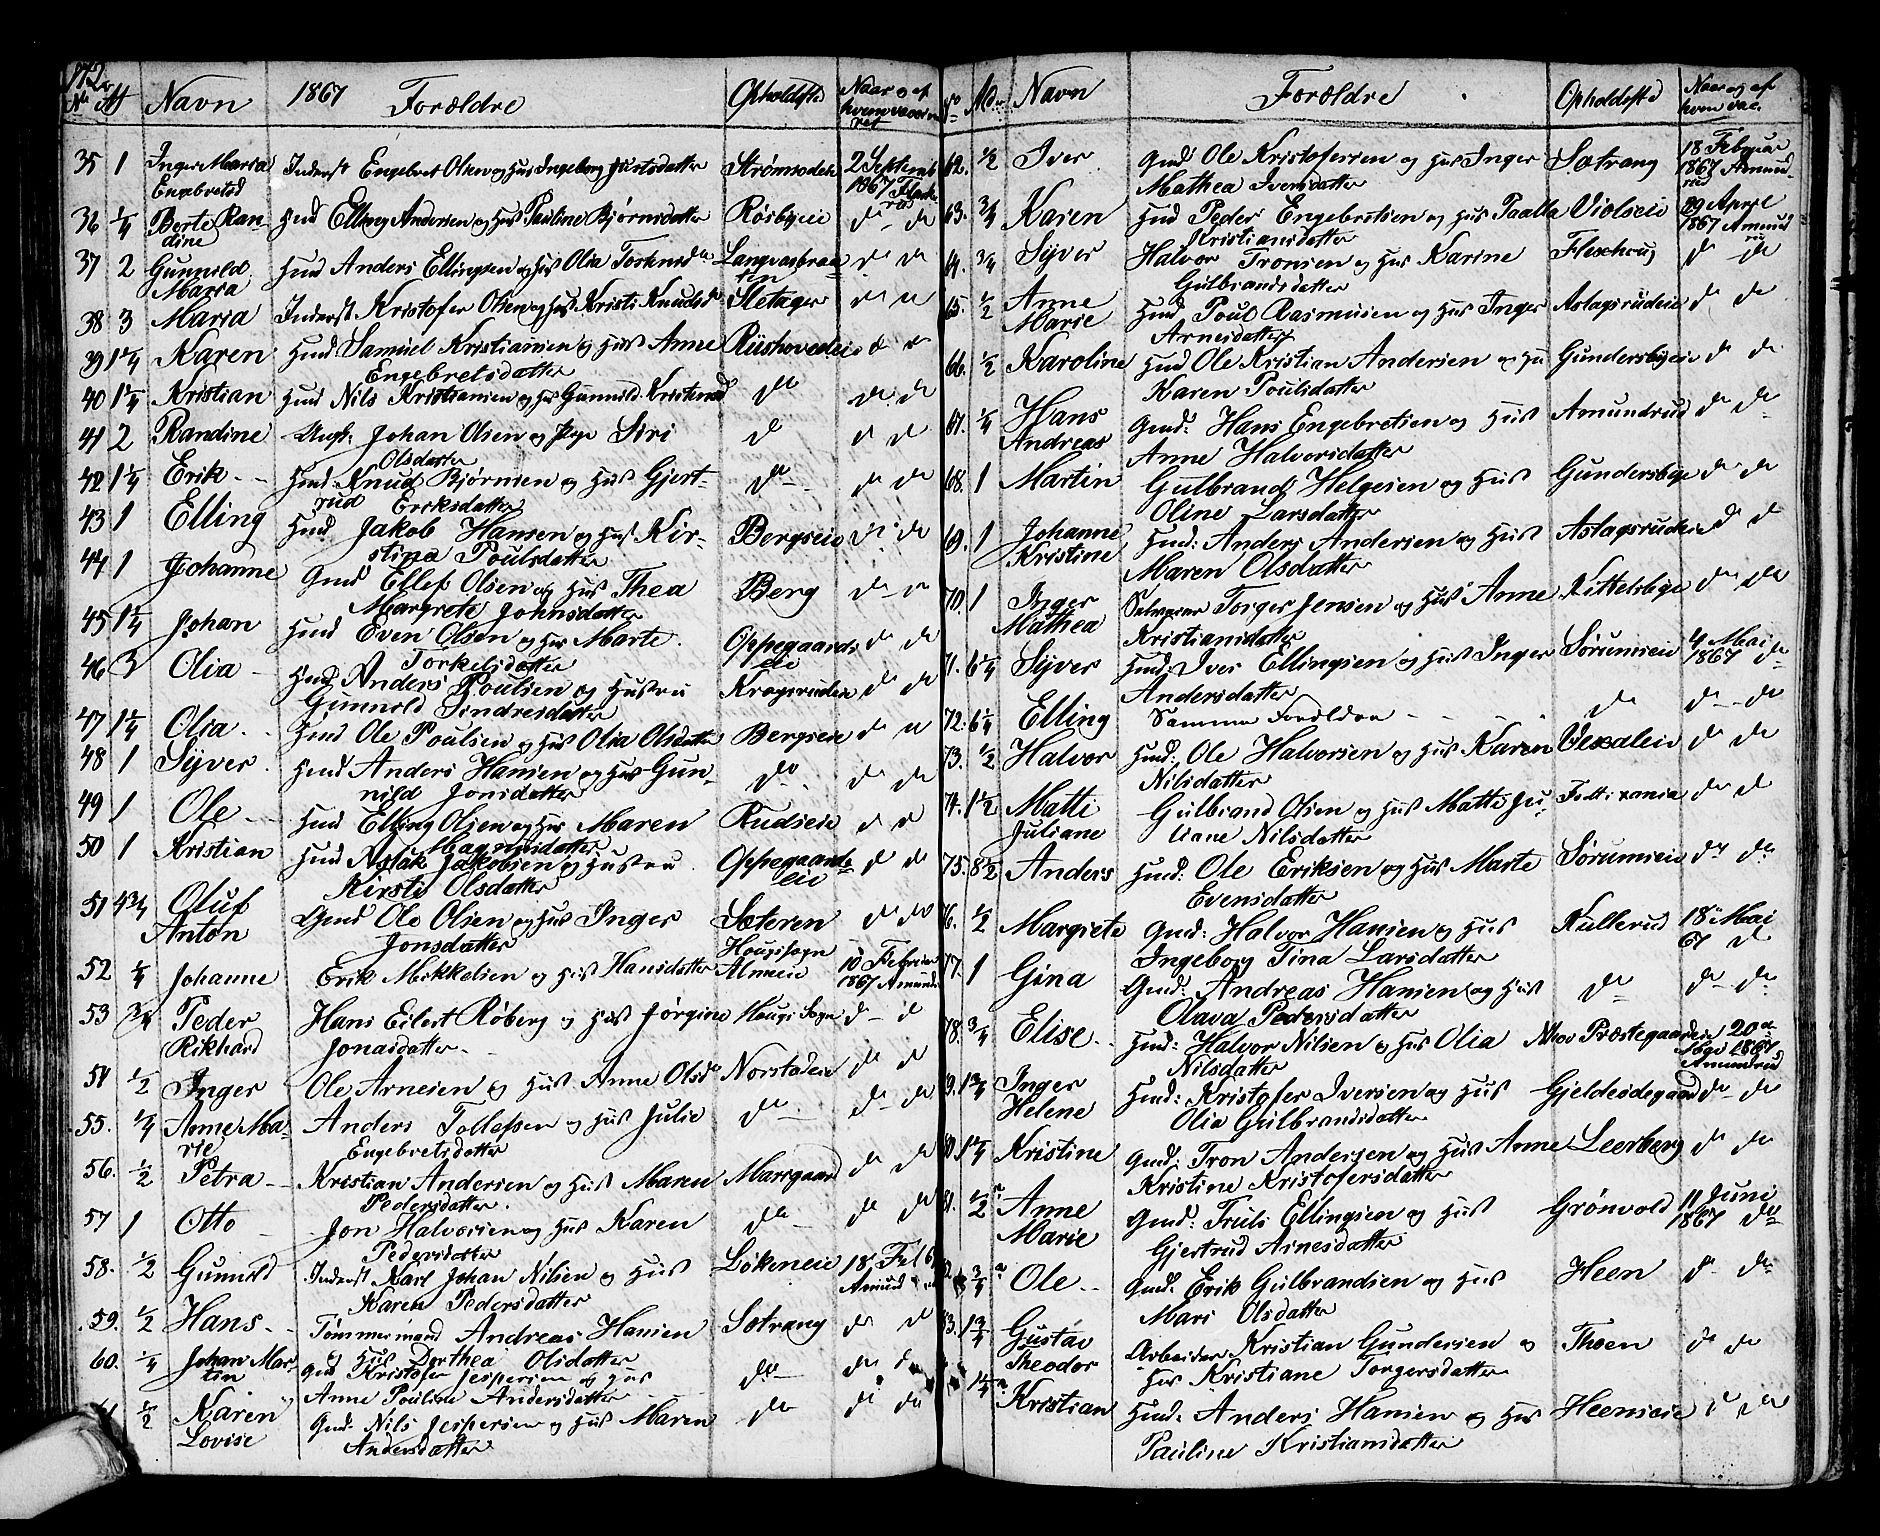 172
No Al Navn 1867 Forældre Opholdsted Naar og af
hvem vaccine
ret
35 1 Inger Maria Inderst Engebret Olsen og Hus Ingeborg Justsdatter Strømsodden 2 Septemb
Engebretsd 1867
36 1/4 Berte Ran- Hmd Elling Andersen og Hus Pauline Bjørnsdatter Røsbyeie do do
dine
37 2 Gunnild Hmd Anders Ellingsen og Hus Olia do do
Maria
38 3 Maria Inderst Kristofer Olsen og Hus Kristi Knudsd Sletager do
39 1 1/4 Karen Hmd Samuel Kristiansen og Hus Anne Riishovedeie
Engebretsdatter
40 1 1/4 Kristian Hmd Nils Kristiansen og Hus Gunnild do do do
41 2 Randine Ungk. Johan Olsen og Pige Siri do do do
Olsdatter
42 1 1/4 Erik Hmd Knud Bjørnsen og Hus Gjert- do do do
rud Eriksdatter
43 1 Elling Hmd Jakob Hansen og Hus Kir- Bergseie do do
stina Poulsdatter
44 1 Johanne Gmd Ellef Olsen og Hus Thea Berg do
Margrete Johnsdatter
45 1 1/4 Johan Hmd Even Olsen og Hus Marte Oppegaards do do
Torkelsdatter eie
46 3 Olia Hmd Anders Poulsen og Hustru Kragsrudeie do do
Gunnild Sindresdatter
47 1 1/4 Olia Hmd Ole Poulsen og Hus Olia Olsdatter Bergseie do
48 1 Syver Hmd Anders Hansen og Hus Gun- do do do
nild Jonsdatter
49 1 Ole Hmd Elling Olsen og Hus Maren Rudseie do do
Magnusdatter
50 1 Kristian Hmd Aslak Jakobsen og Hustru Oppegaards do do
Kirsti Olsdatter eie
51 4 3/4 Oluf Gmd Ole Olsen og Hus Inger Sæteren do do
Anton Jonsdatter Hougssogn
52 1/4 Johanne Erik Mikkelsen og Hus Hansdatter Almeie 10 Februar
1867 Amund
53 3/4 Peder Hans Eilert Røberg og Hus Jørgine Hougs Sogn do do
Rikhard Jonasdatter
54 1/2 Inger Ole Arnesen og Hus Anne Olsd Norstadeie do do
55. 1/4 Anne Ma- Anders Tollefsen og Hus Julie do do do
rie Engebretsdatter
56. 1/2 Petra Kristian Andersen og Hus Maren Morsgaard do do
Pedersdatter
57 1 Otto Jon Halvorsen og Hus Karen do do do
Pedersdatter
58. 1/2 Gunnild Inderst Karl Johan Nilsen og Hus Løkeneie 18 Feb 67
Karen Pedersdatter Amund
59. 1/2 Hans Tømmermand Andreas Hansen Sotrang do do
og Hus Dorthea Olsdatter
60. 1/4 Johan Mar- Gmd Kristofer Jespersen og Hus do do
tin Anne Pouline Andersdatter
61 1/2 Karen Gmd Nils Jespersen og Hus Maren do do do
Lovise Andersdatter
No Navn Forældre Opholdsted Naar og af
hvem vac.
62. 1/2 Iver Gmd Ole Kristofersen og Hus Inger Sætrang 18 Februar
Mathea Iversdatter 1867 Amund-
rud
63. 3/4 Karen Hmd Peder Engebretsen og Hus Paalla Violseie 29 April
Kristiansdatter 1867 Amund
rud
64. 3/4 Syver Halvor Tronsen og Hus Karine Fleschrug do do
Gulbrandsdatter
65. 1/2 Anne Hmd Poul Rasmusen og Hus Inger Aslagsrudeie do do
Marie Arnesdatter
66. 1/2 Karoline Hmd Ole Kristian Andersen og Hu Gundersbyeie do do
Karen Poulsdatter
67. 1/4 Hans Gmd: Hans Engebretsen og Hus Amundrud do do
Andreas Anne Halvorsdatter
68. 1 Martin Gulbrand Helgesen og Hus Gundersbye do do
Oline Larsdatter
69. 1 Johanne Hmd: Anders Andersen og Hus Aslagsrudeie do do
Kristine Maren Olsdatter
70. 1 Inger Selveeier Torger Jensen og Hus Anne Kittelsbye do do
Mathea Kristiansdatter
71. 6 1/4 Syver Hmd: Iver Ellingsen og Hus Inger Sørumseie 4 Mai
Andersdatter 1867 do
72. 6 1/4 Elling Samme Forældre do do do
73. 1/2 Halvor Hmd: Ole Halvorsen og Hus Karen Vexaleie do do
Nilsdatter
74. 1 1/2 Matti Gulbrand Olsen og Hus Matte Ju- do do
Juliane liane Nilsdatter
75. 8 1/2 Anders Hmd: Ole Eriksen og Hus Marte Sørumseie do do
Evensdatter
76. 1/2 Margrete Gmd: Halvor Hansen og Hus Kullerud 18 Mai
Ingeborg Tina Larsdatter 67 do
77. 1 Gina Gmd: Andreas Hansen og Hus do do do
Olava Pedersdatter
78. 3/4 Elise Hmd: Halvor Nilsen og Hus Olia Moe Præstegaardeie 20de
Nilsdatter Mai 1867
Amundrud
79. 1 3/4 Inger Hmd: Kristofer Iversen og Hus Gjeldesdegaard do do
Helene Olia Gulbrandsdatter
80. 1 1/4 Kristine Gmd: Tron Andersen og Hus Anne Leerberg do do
Kristine Kristofersdatter
81. 1/2 Anne Gmd: Truls Ellingsen og Hus Grønvold 11 Juni
Marie Gjertrud Arnesdatter 1867 do
82. 3/4 Ole Gmd: Erik Gulbrandsen og Hus Heen do do
Mari Olsdatter
83. 1 3/4 Gustav Arbeider Kristian Gundersen og Thoen do do
Theodor Hus Kristiane Torgersdatter
1 1/4 Kristian Hmd: Anders Hansen og Hus Heenseie do
Pauline Kristiansdatter